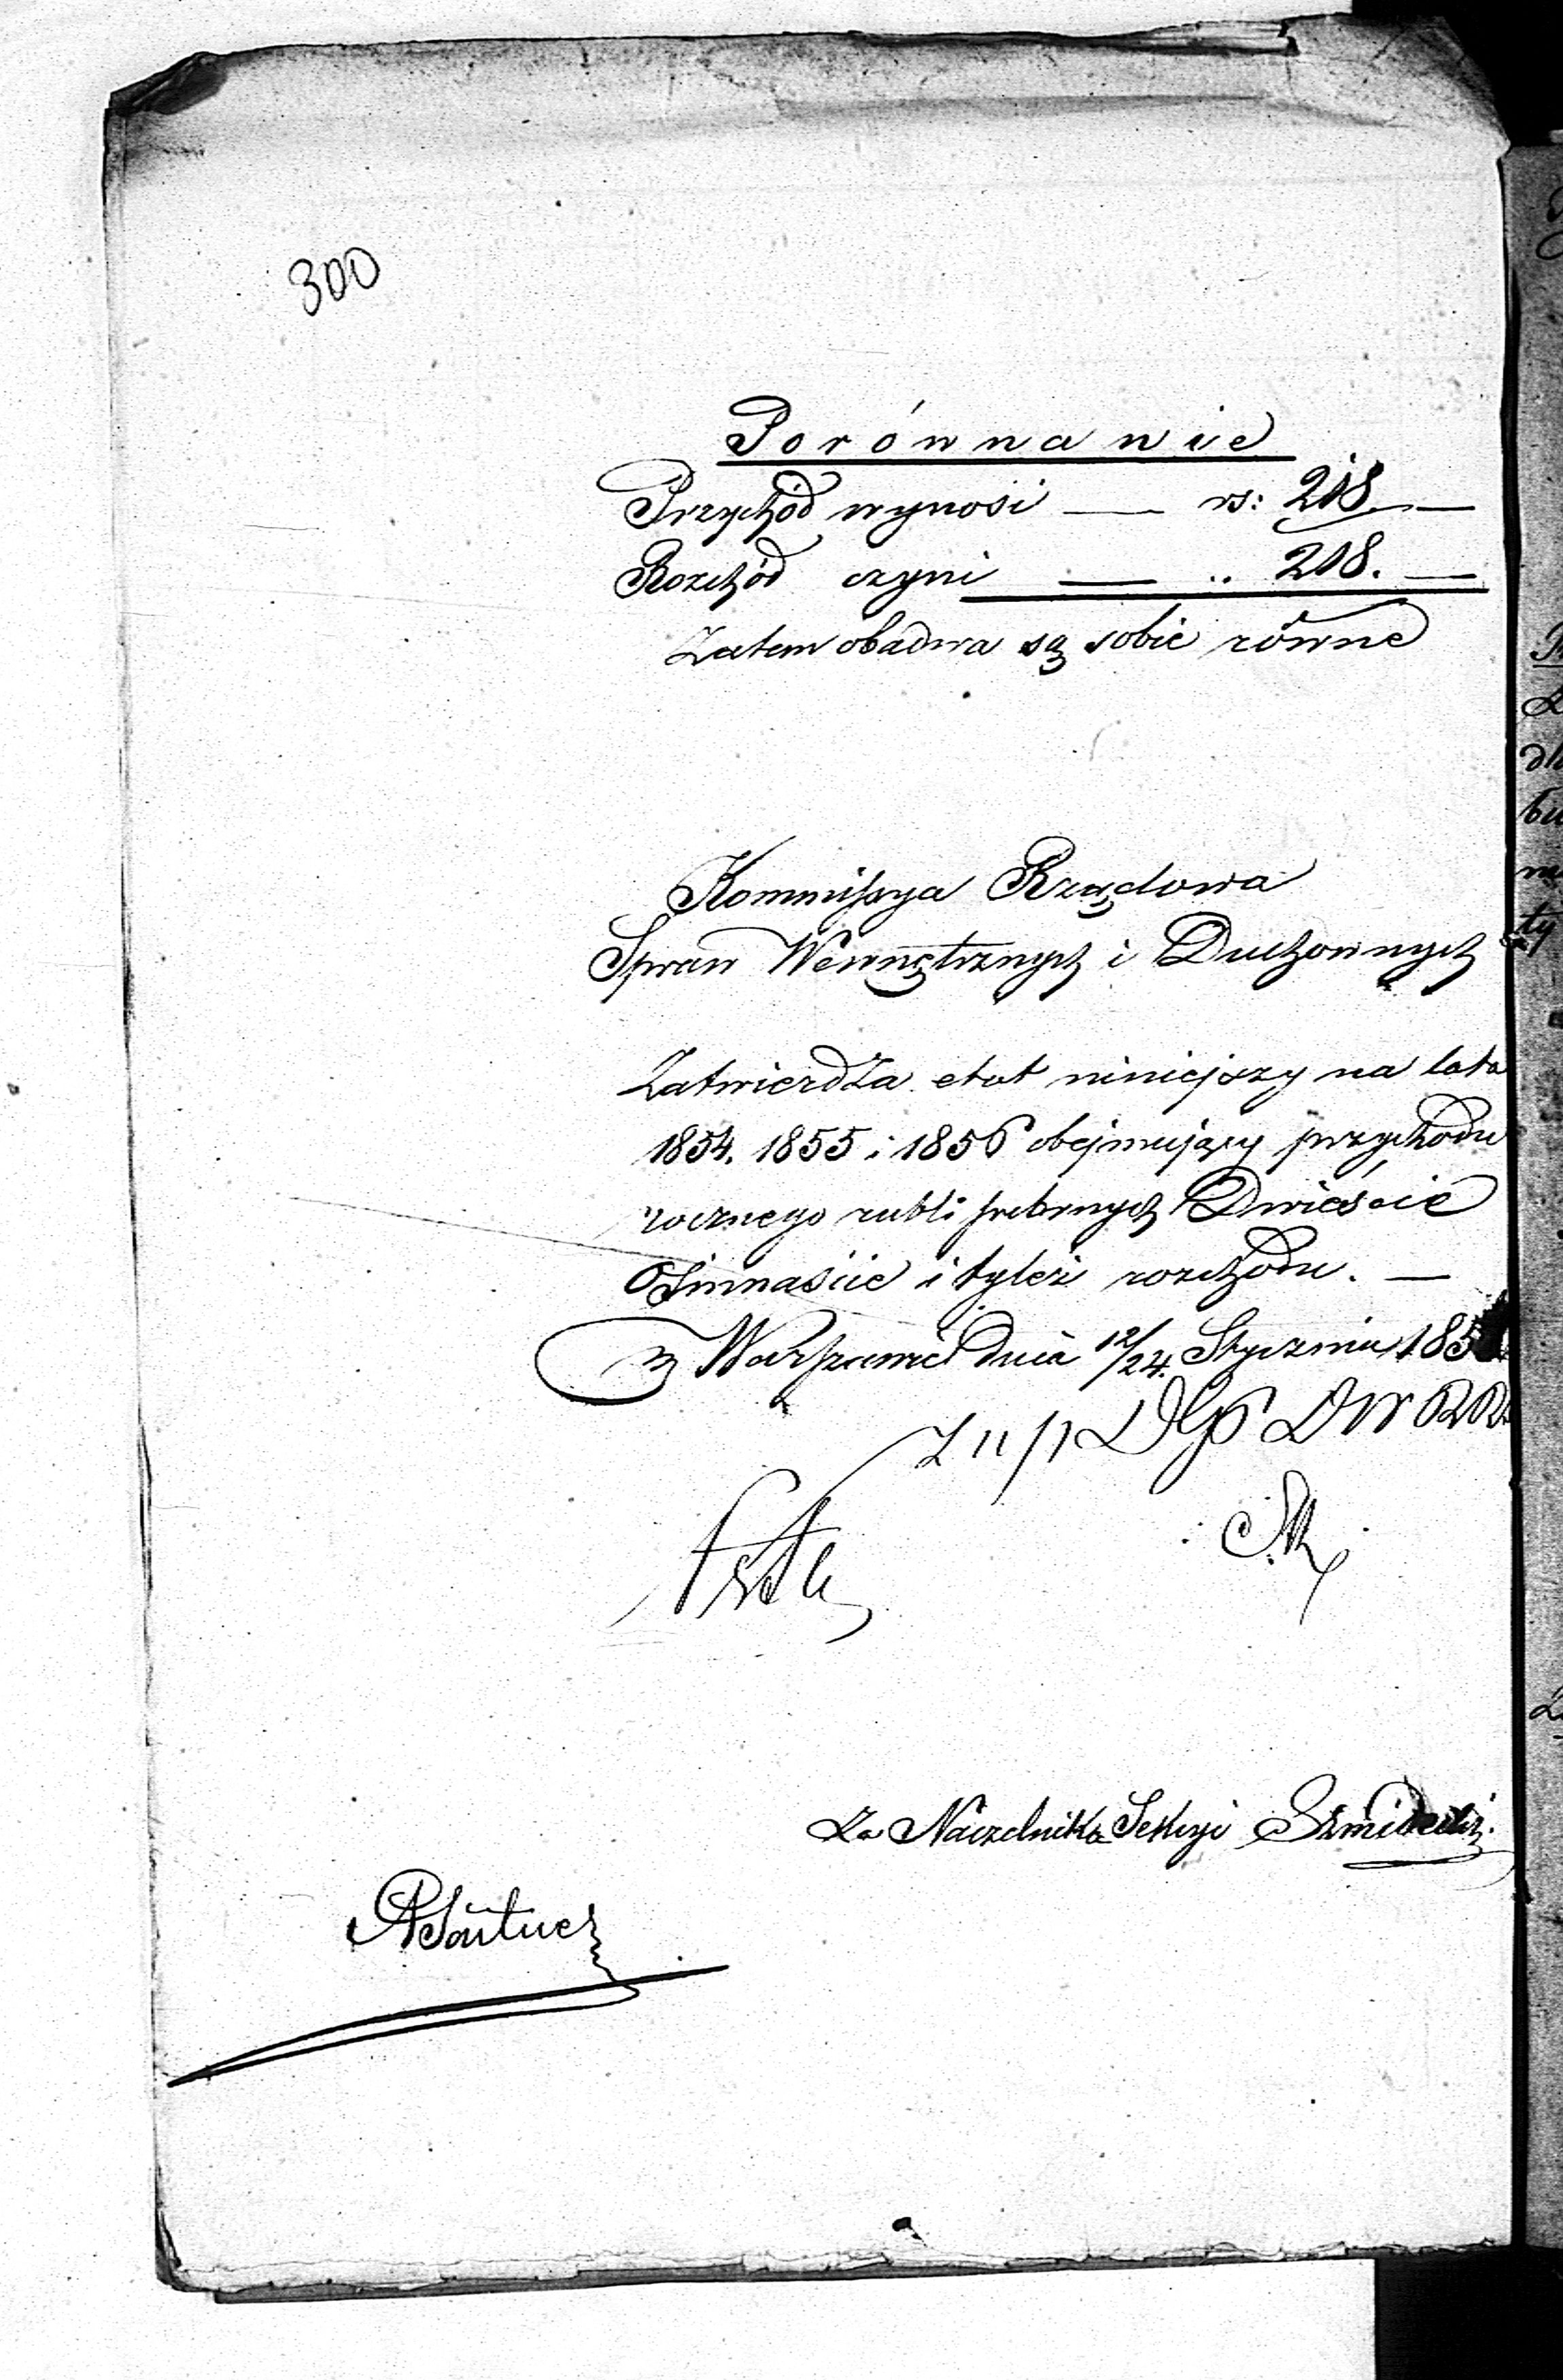 300
Porównanie
Przychód wynosi — rs: 218. —
Rozchód czyni — „ 218. —
Zatem obadwa są sobie równe
Kommissya Rządowa
Spraw Wewnętrznych i Duchownych
Zatwierdza etat niniejszy na lata
1854. 1855 i 1856 obejmujący przychodu
rocznego rubli srebrnych Dwieście
Osimnaście i tyleż rozchodu. —
w Warszawie dnia 12/24. Stycznia 185
Za Naczelnika Sekcyi